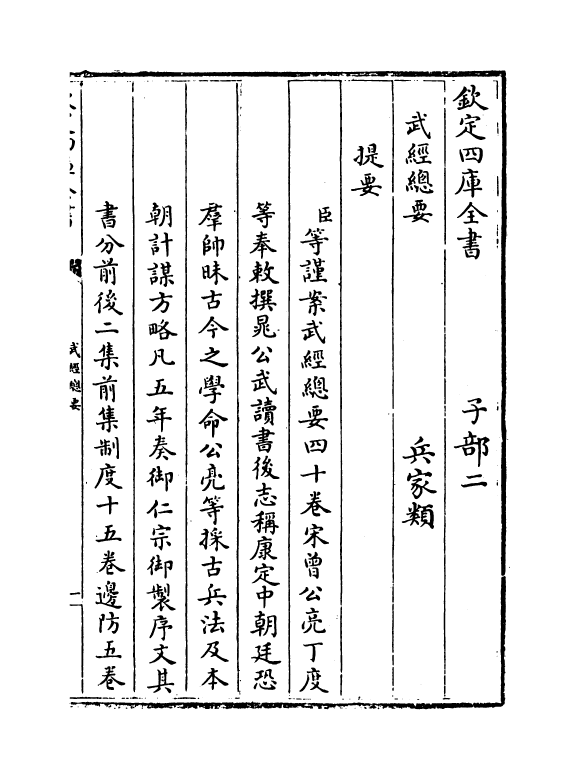 欽定四庫全書　子部二
武經總要　兵家類
提要
臣等謹案武經總要四十卷宋曾公亮丁度
等奉敕撰晁公武讀書後志稱康定中朝廷恐
羣帥昧古今之學命公亮等採古兵法及本
朝計謀方略凡五年奏御仁宗御製序文其
書分前後二集前集制度十五卷邊防五卷
武經總要　一